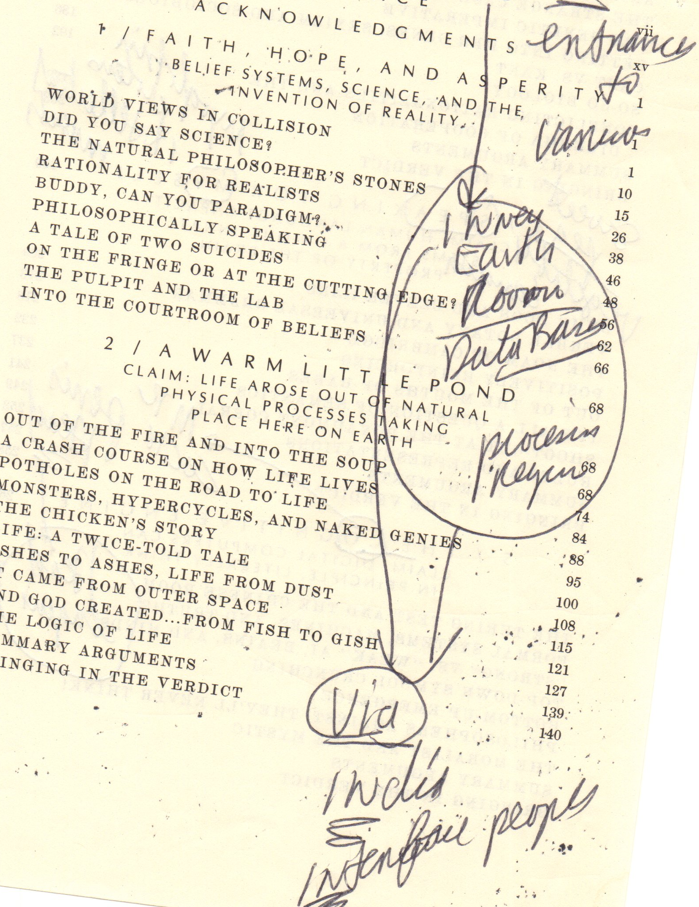 ACKNOWLEDGMENTS
vii
entrances
xv
to
1 / FAITH, HOPE, AND ASPERITY
1
BELIEF SYSTEMS, SCIENCE, AND THE
INVENTION OF REALITY
various
WORLD VIEWS IN COLLISION 1
DID YOU SAY SCIENCE? 1
THE NATURAL PHILOSOPHER'S STONES 10
RATIONALITY FOR REALISTS 15
BUDDY, CAN YOU PARADIGM? 26
PHILOSOPHICALLY SPEAKING 38
A TALE OF TWO SUICIDES 46
ON THE FRINGE OR AT THE CUTTING EDGE? 48
THE PULPIT AND THE LAB 56
INTO THE COURTROOM OF BELIEFS 62
66
Inney
Earth
Room
Data Bases
2 / A WARM LITTLE POND
68
CLAIM: LIFE AROSE OUT OF NATURAL
PHYSICAL PROCESSES TAKING
PLACE HERE ON EARTH
OUT OF THE FIRE AND INTO THE SOUP 68
A CRASH COURSE ON HOW LIFE LIVES 68
POTHOLES ON THE ROAD TO LIFE 74
MONSTERS, HYPERCYCLES, AND NAKED GENIES 84
THE CHICKEN'S STORY 88
IFE: A TWICE-TOLD TALE 95
SHES TO ASHES, LIFE FROM DUST 100
T CAME FROM OUTER SPACE 108
ND GOD CREATED...FROM FISH TO GISH 115
HE LOGIC OF LIFE 121
MMARY ARGUMENTS 127
INGING IN THE VERDICT 139
140
Via
India
Interface peoples